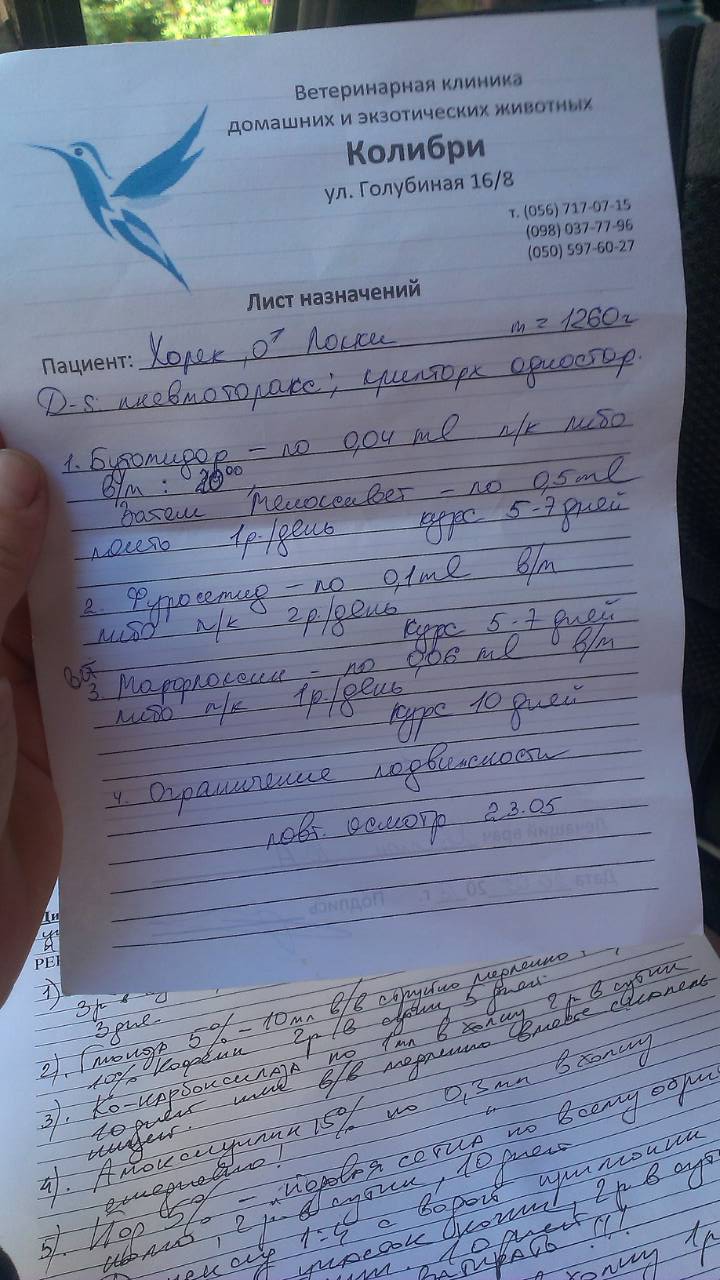 Ветеринарная клиника
домашних и экзотических животных
Колибри
ул. Голубиная 16/8
т. (056) 717-07-15
(098) 037-77-96
(050) 597-60-27
Лист назначений
Пациент: Хорек, ♂ Локки m = 1260г
D-s: пневмоторакс; крипторх одностор.
1. Бутомидор – по 0,04 ml п/к либо
в/м : 20⁰⁰,
Затем Мелоксивет – по 0,5 ml
1р./день курс 5-7 дней
2. Фуросемид – по 0,1 ml в/м
либо п/к 2р./день
курс 5-7 дней
3. Марфлоксин – по 0,06 ml в/м
либо п/к 1р./день
курс 10 дней
4. Ограничение подвижности
повт. осмотр 23.05
Лечащий врач
Дата 20 г. Подпись
РЕ
1)
3 дня.
2). 5% – 10мл в/в струйно медленно
10% Кофеин 2р в сутки, 5 дней
3). Ко-карбоксилаза по 1мл в холку 2р в сутки
10 дней или в/в медленно вместе
4). Амоксициллин 15% по 0,3мл в холку
ежедневно!
5). Йод 5% – йодовая сетка по всему
2р в сутки, 10 дней
1:4 с водой примочки
участок кожи, 2р в
10 дней
!!!
холку 1р